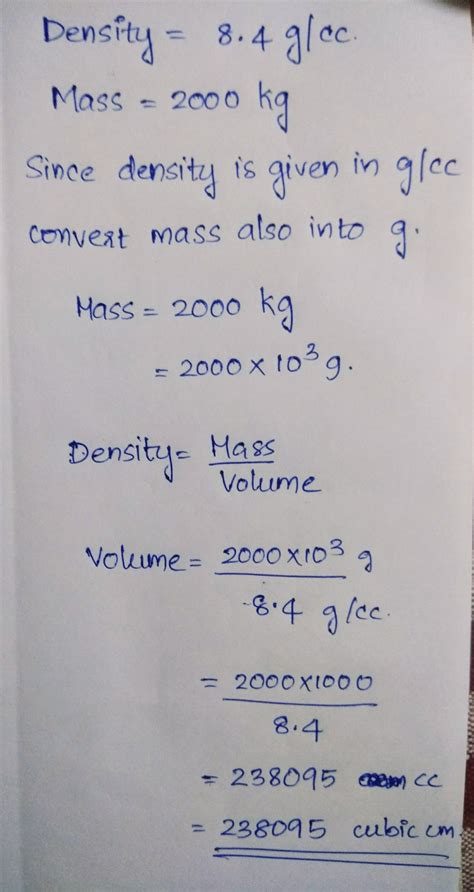 Density = 8.4 g/cc.
Mass = 2000 kg
Since density is given in g/cc
convert mass also into g.
Mass = 2000 kg
= 2000 × 10³ g.
Density = Mass
Volume
Volume = 2000×10³ g
8.4 g/cc.
= 2000×1000
8.4
= 238095 cc
= 238095 cubic cm.